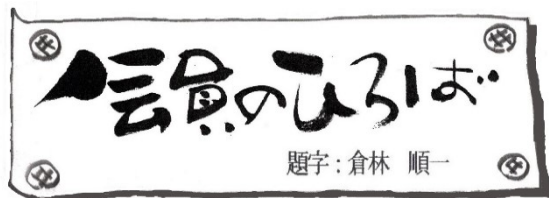 会員のひろば
題字：倉林 順一